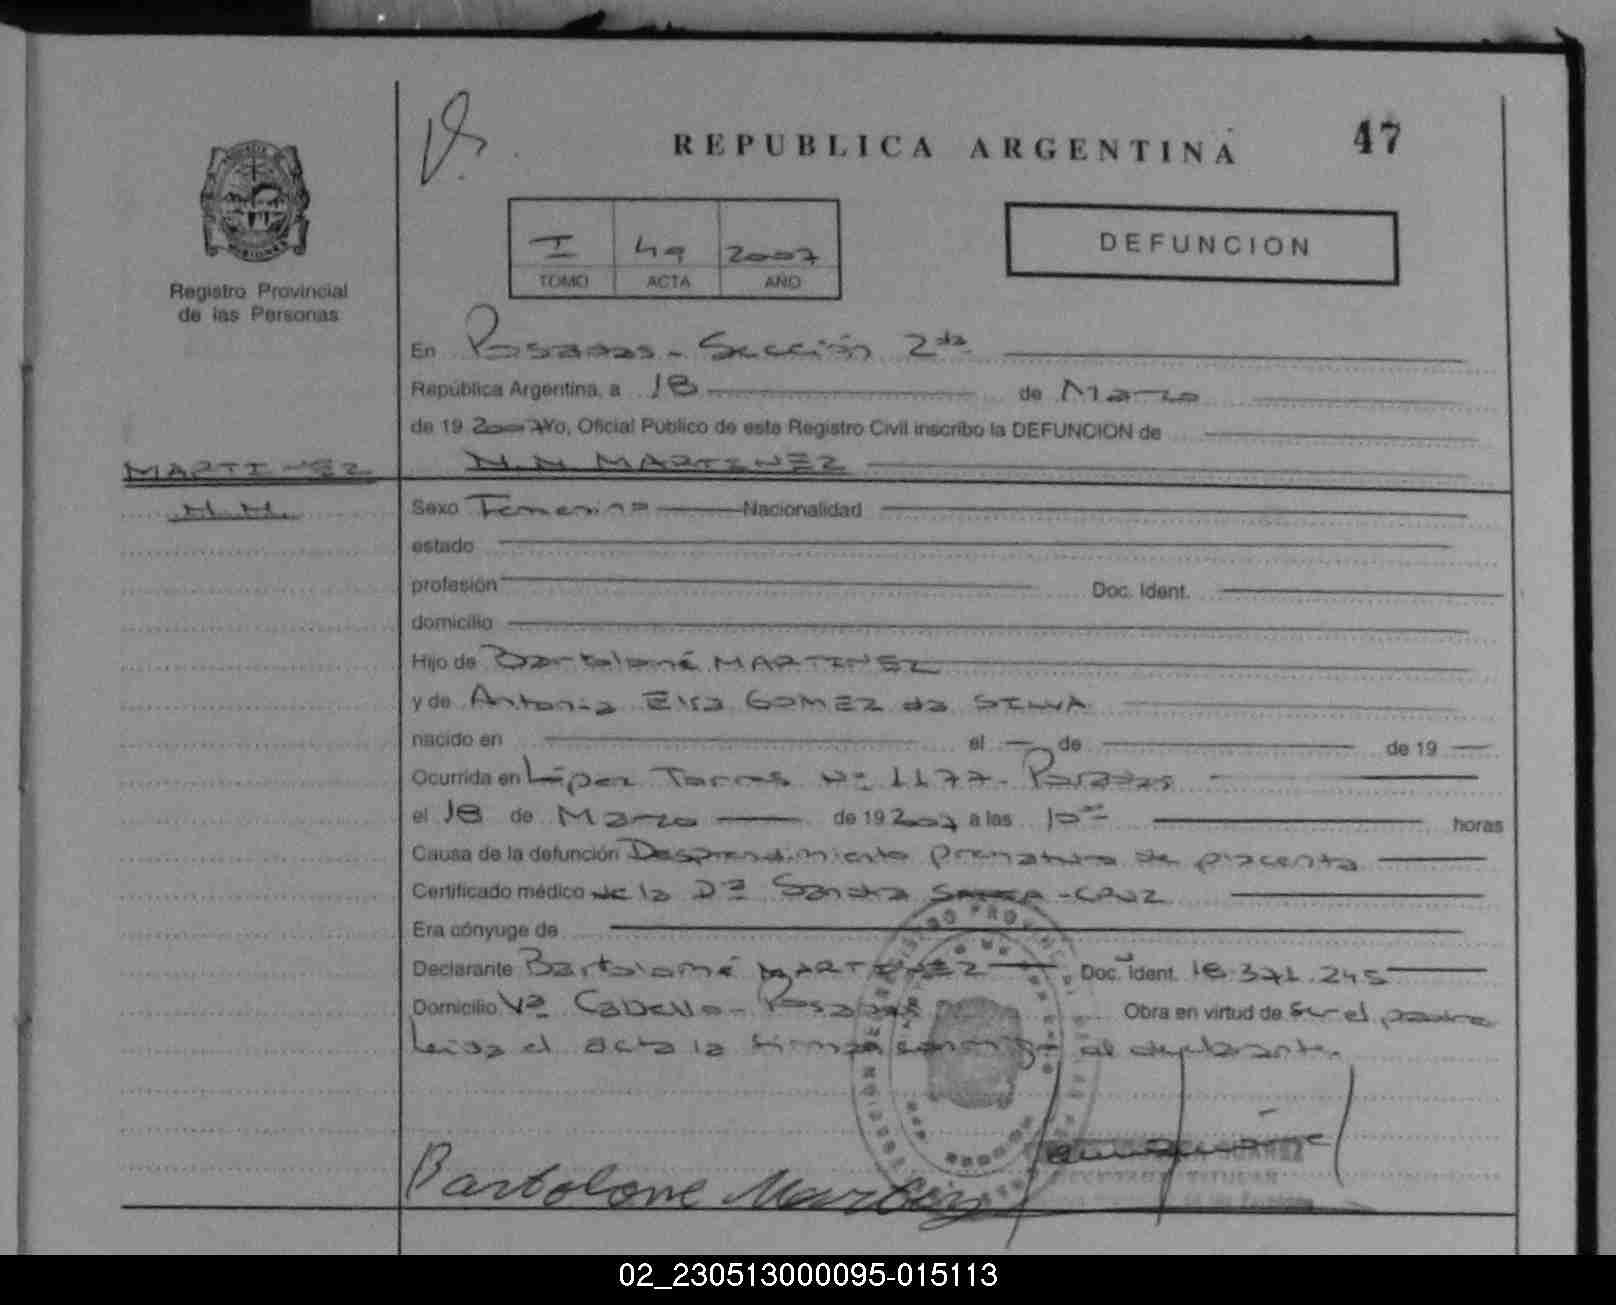 REPUBLICA ARGENTINA
47
I 49 2007
TOMO ACTA AÑO
DEFUNCION
Registro Provincial
de las Personas
En Posadas - Sección 2da
República Argentina, a 18 de Marzo
de 19 2007 Yo, Oficial Público de este Registro Civil inscribo la DEFUNCION de
MARTINEZ
N.N. MARTINEZ
N.N.
Sexo Femenino Nacionalidad
estado
profesión Doc. Ident.
domicilio
Hijo de Bartolomé MARTINEZ
y de Antonia Elsa GOMEZ da SILVA
nacido en el de de 19
Ocurrida en López Torres Nº 1177 - Posadas
el 18 de Marzo de 19 2007 a las 10 horas
Causa de la defunción Desprendimiento prematuro de placenta
Certificado médico de la Dra Sandra CRUZ
Era cónyuge de
Declarante Bartolomé MARTINEZ Doc. Ident. 18.371.245
Domicilio Va Cabello - Posadas Obra en virtud de ser el padre
Leida el acta la firman conmigo el declarante.
Bartolome Martinez
TITULAR
02_230513000095-015113